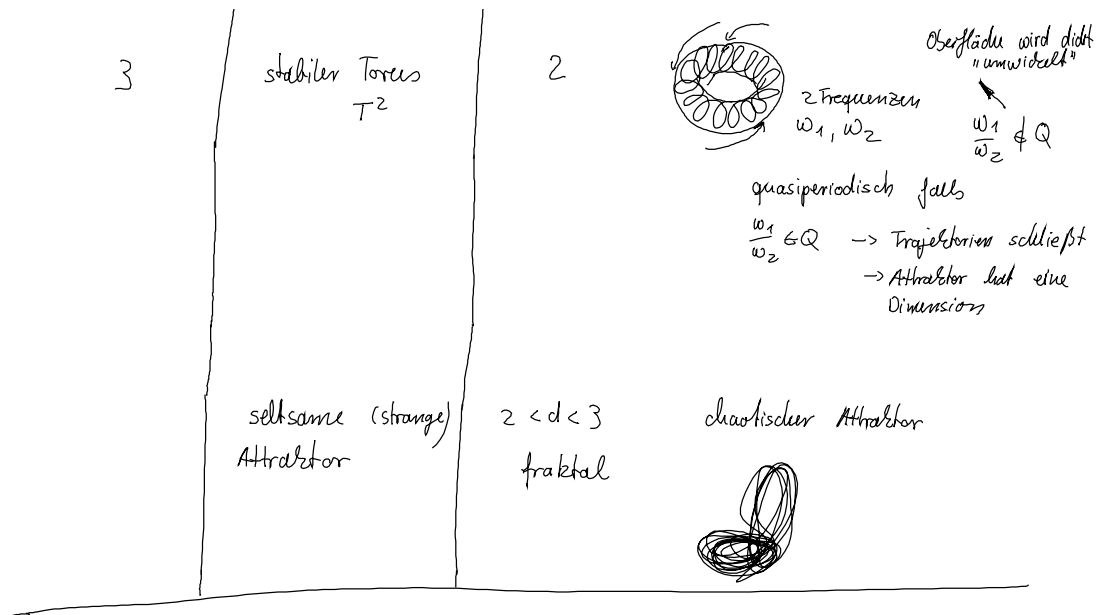 3
stabiler Torus
T²
2
2 Frequenzen
ω1, ω2
Oberfläche wird dicht
"umwickelt"
ω1/ω2 ∉ Q
quasiperiodisch falls
ω1/ω2 ∈ Q → Trajektorien schließt
→ Attraktor hat eine
Dimension
seltsame (strange)
Attraktor
2 < d < 3
fraktal
chaotischer Attraktor